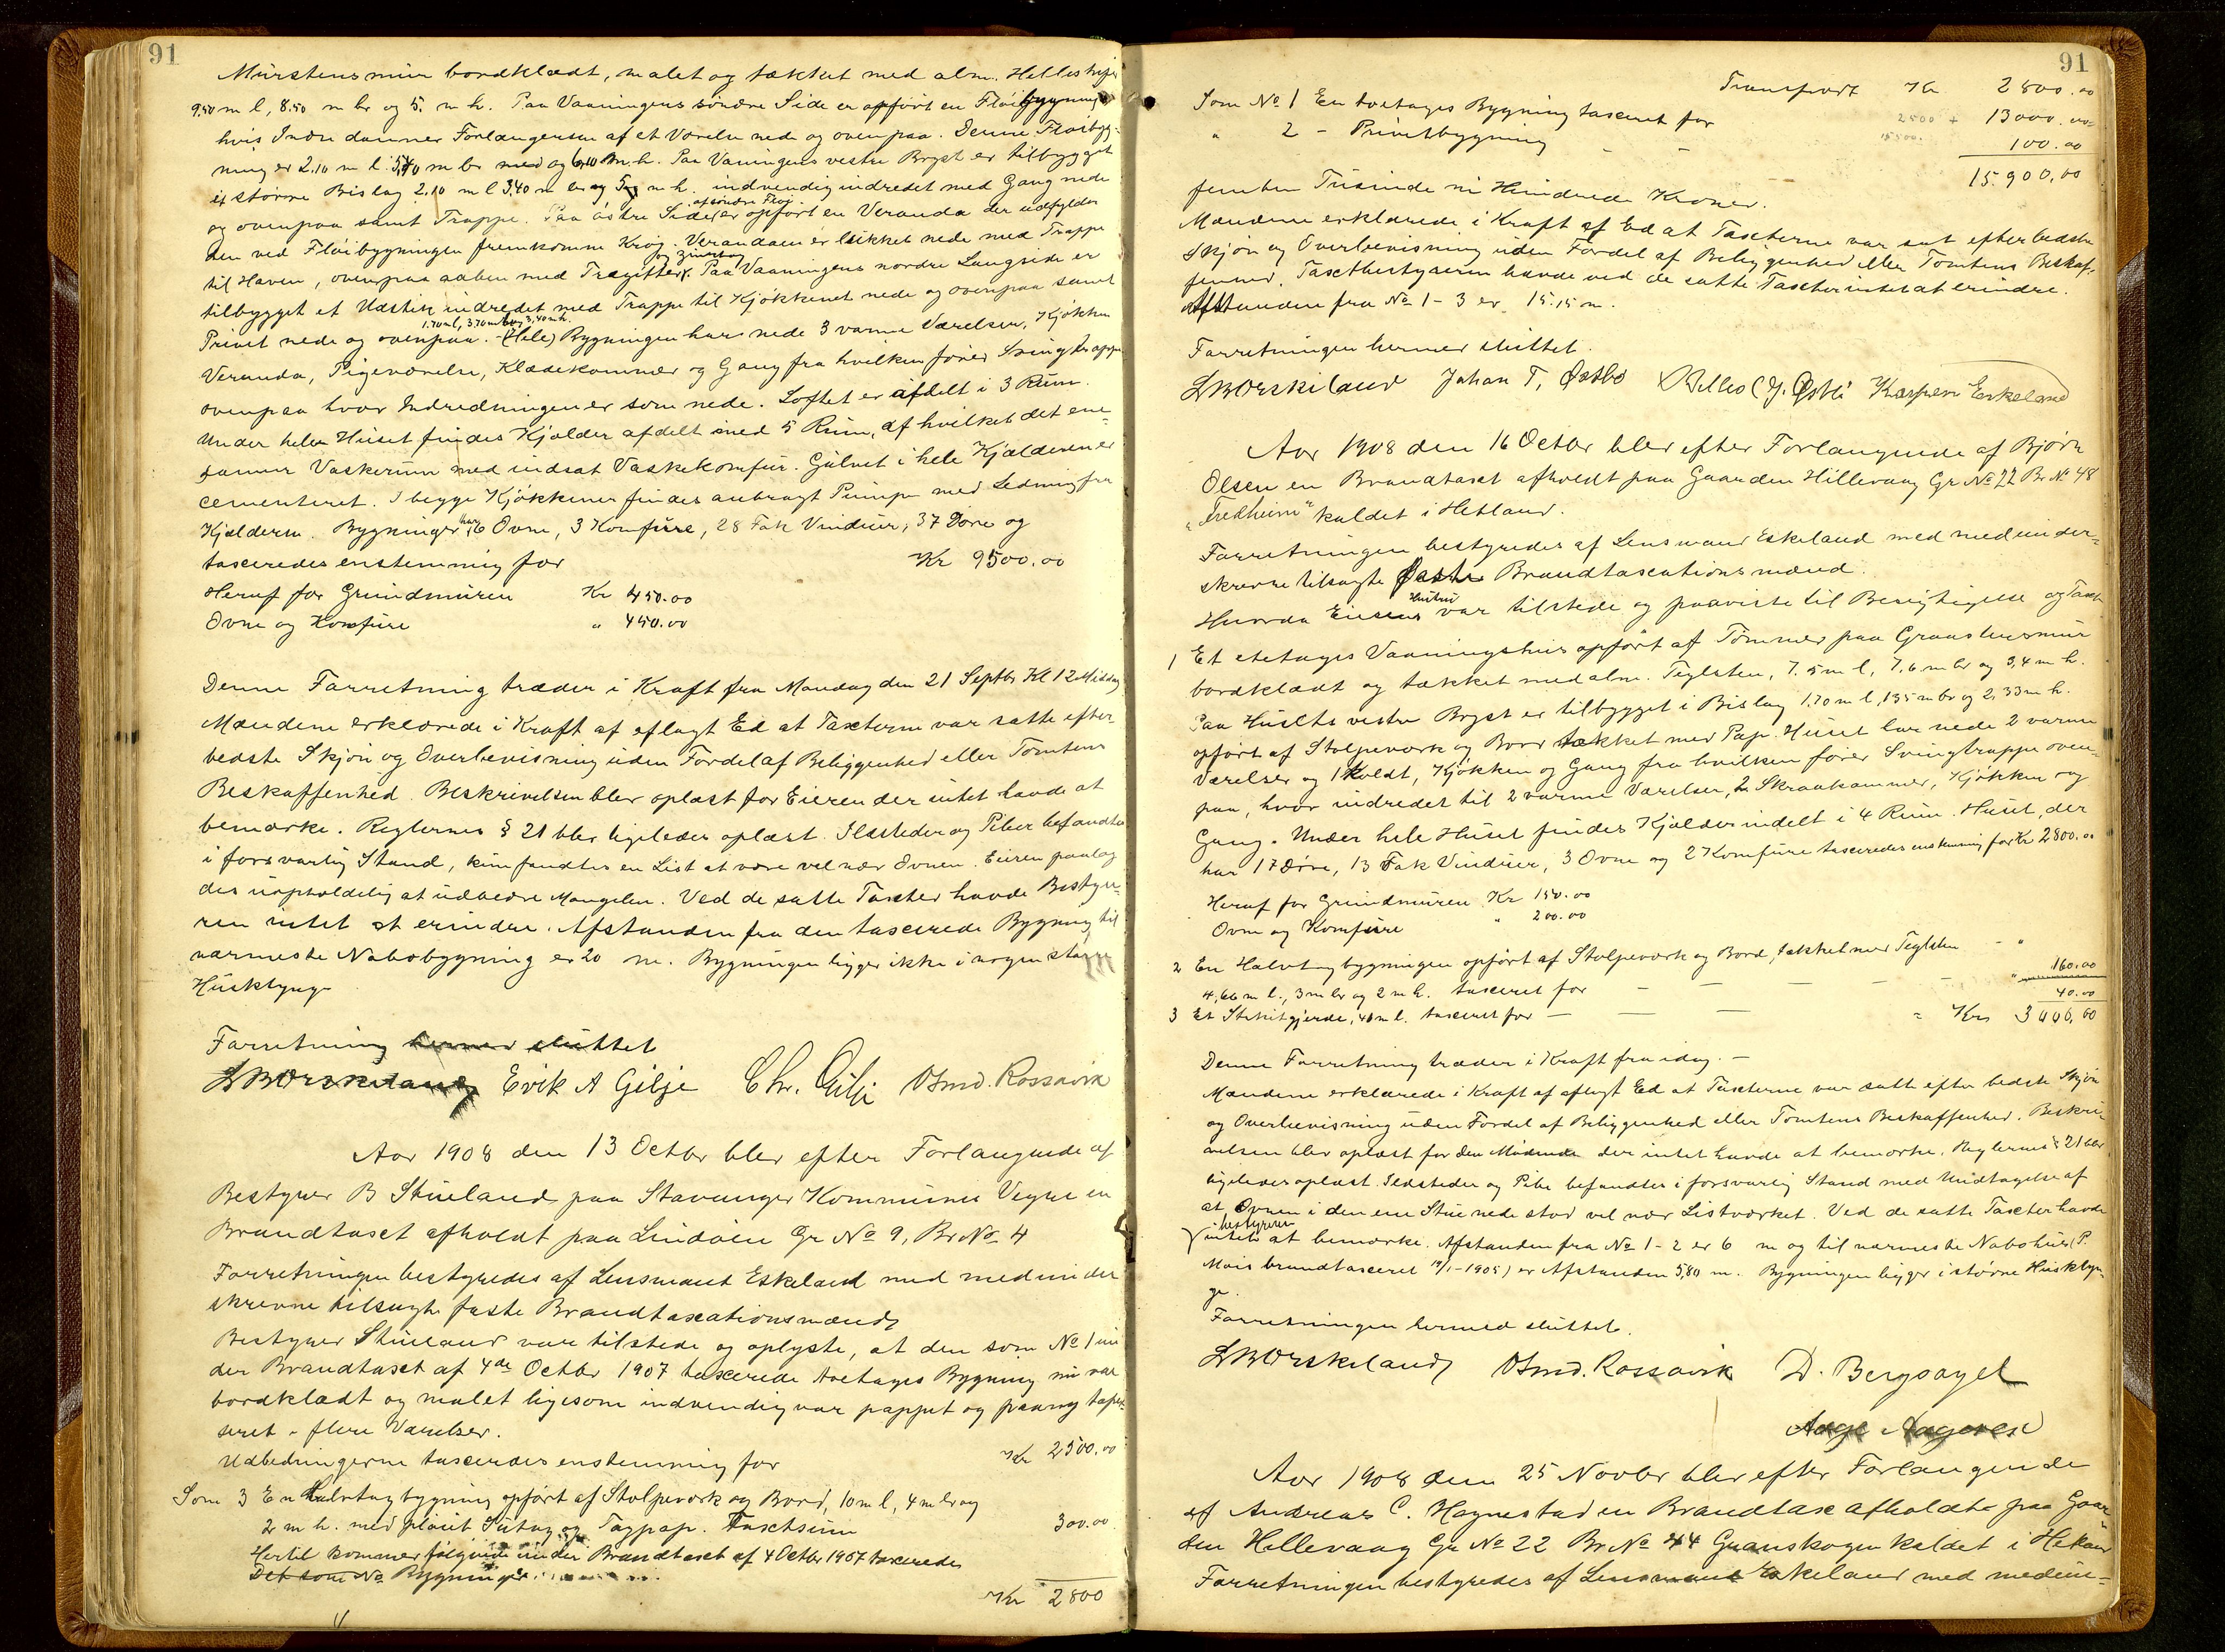 91
Murstensmur bordklædt, malet og tækket med alm. Helleskifer
9.50 m l, 8.50 m br og 5. m h. Paa Vaaningens søndre Side er opført en Fløibygning
hvis Indre danner Forlængelsen af et Værelse nede og ovenpaa. Denne Fløibyg-
ning er 2.10 m l. m br og m h. Paa Vaaningens vestre Bryst er tilbygget
et større Bislag 2.10 m l 3,40 m br og m h. indvendig indredet med Gang nede
og ovenpaa samt Trappe. Paa østre Side af søndre Fløi er opført en Veranda der udfylder
den ved Fløibygningen fremkomne Krog. Verandaen er lukket nede med Trappe
til Haven, ovenpaa aaben med Trægitter og Zinktag. Paa Vaaningens nordre Langside er
tilbygget et Udstik indredet med Trappe til Kjøkkenet nede og ovenpaa samt
Privet nede og ovenpaa. 1.70 m l, 3.70 m br og 3,40 m h. (Hele) Bygningen har nede 3 varme Værelser, Kjøkken
Veranda, Pigeværelse, Klædekammer og Gang fra hvilken fører Svingtrappe
ovenpaa hvor Indredningen er som nede. Loftet er afdelt i 3 Rum.
Under hele Huset findes Kjælder afdelt med 5 Rum, af hvilket det ene
danner Vaskerum med indsat Vaskekomfur. Gulvet i hele Kjælderen er
cementeret. I begge Kjøkkener findes anbragt Pumpe med Ledning fra
Kjælderen. Bygningen har 6 Ovne, 3 Komfure, 28 Fak Vinduer, 37 Døre og
taxeredes enstemmig for Kr 9500.00
Heraf for Grundmuren Kr 450.00
Ovne og Komfure " 450.00
Denne Forretning træder i Kraft fra Mandag den 21 Septbr Kl 12 Middag
Mændene erklærede i Kraft af aflagt Ed at Taxterne var satte efter
bedste Skjøn og Overbevisning uden Fordel af Beliggenhed eller Tomtens
Beskaffenhed. Beskrivelsen blev oplæst for Eieren der intet havde at
bemærke. Reglernes § 21 blev ligeledes oplæst. Ildsteder og Piber befandtes
i forsvarlig Stand, kun fandtes en List at være vel nær Ovnen. Eieren paalag
des uopholdelig at udbedre Mangelen. Ved de satte Taxter havde Besty-
ren intet at erindre. Afstanden fra den taxerede Bygning til
nærmeste Nabobygning er 20 m. Bygningen ligger ikke i nogen større
Husklynge
Forretning hermed sluttet
Erik A Gilje Chr. Gilje Osmd. Rossavik
Aar 1908 den 13 Octbr blev efter Forlangende af
Bestyrer B Stueland paa Stavanger Kommunes Vegne en
Brandtaxt afholdt paa Lindøen Gr No 9, Br No 4
Forretningen bestyredes af Lensmand Eskeland med medunder
skrevne tilsagte faste Brandtaxationsmænd
Bestyrer Stueland var tilstede og oplyste, at den som No 1 un
der Brandtaxt af 4de Octbr 1907 taxerede toetages Bygning nu var
bordklædt og malet ligesom indvendig var pappet og paany tape-
seret i flere Værelser.
Udbedringerne taxeredes enstemmig for Kr 2500.00
Som 3 En Halvtagbygning opført af Stolpeværk og Bord, 10 m l, 4 m br og
2 m h. med pløiet Sutag og Tagpap. Taxtsum 300.00
Hertil kommer følgende under Brandtaxt af 4 Octbr 1907 taxerede
Det som No Bygninger
Kr 2800
91
Transport Kr 2800.00
Som No 1 En toetages Bygning taxeret for 2500 + 13000.00
" 2 - Privetbygning - - 15500. 100.00
15.900,00
femten Tusinde ni Hundrede Kroner.
Mændene erklærede i Kraft af Ed at Taxterne var sat efter bedste
Skjøn og Overbevisning uden Fordel af Beliggenhed eller Tomtens Beskaf-
fenhed. Taxtbestyreren havde ved de satte Taxter intet at erindre.
Afstanden fra No 1 - 3 er 15.15 m.
Forretningen hermed sluttet.
Johan T. Østbø Østbø Kaspar Eskeland
Aar 1908 den 16 Octbr blev efter Forlangende af Bjørn
Olsen en Brandtaxt afholdt paa Gaarden Hillevaag Gr No 22 Br No 48
"Fredheim" kaldet i Hetland.
Forretningen bestyredes af Lensmand Eskeland med medunder-
skrevne tilsagte faste Brandtaxationsmænd.
Eierens Hustru var tilstede og paaviste til Besigtigelse og Taxt
1 Et etetages Vaaningshus opført af Tømmer paa Graastensmur
bordklædt og tækket med alm. Teglsten, 7.5 m l, 7,6 m br og 3,4 m h.
Paa Husets vestre Bryst er tilbygget i Bislag 1.70 m l, 1.35 m br og 2,33 m h.
opført af Stolpeværk og Bord tækket med Pap. Huset har nede 2 varme
Værelser og 1 koldt, Kjøkken og Gang fra hvilken fører Svingtrappe oven-
paa, hvor indredet til 2 varme Værelser, 2 Skraakammer, Kjøkken og
Gang. Under hele Huset findes Kjælder indelt i 4 Rum. Huset, der
har 17 Døre, 13 Fak Vinduer, 3 Ovne og 2 Komfure taxeredes enstemmig for Kr 2800.00
Heraf for Grundmuren Kr 150.00
Ovne og Komfure " 200.00
2 En Halvtagbygningen opført af Stolpeværk og Bord, tækket med Teglsten - "
4,66 m l., 3 m br og 2 m h. taxeret for - - - - - " 160.00
3 Et Stakitgjerde, 40 m l. taxeret for - - - 40.00
" Kr
Denne Forretning træder i Kraft fra idag. -
Mændene erklærede i Kraft af aflagt Ed at Taxterne var satte efter bedste Skjøn
og Overbevisning uden Fordel af Beliggenhed eller Tomtens Beskaffenhed. Beskri-
velsen blev oplæst for den Mødende der intet havde at bemærke. Reglernes § 21 blev
ligeledes oplæst. Ildsteder og Pibe befandtes i forsvarlig Stand med Undtagelse af
at Ovnen i den ene Stue nede stod vel nær Listværket. Ved de satte Taxter havde
bestyreren intet at bemærke. Afstanden fra No 1 - 2 er 6 m og til nærmeste Nabohus (P.
brandtaxeret /1 - 1905) er Afstanden 5,80 m. Bygningen ligger i større Husklyn-
ge.
Forretningen hermed sluttet.
Osmd. Rossavik D. Bergsagel
Aage
Aar 1908 den 25 Novbr blev efter Forlangende
af Andreas C. Hognestad en Brandtaxt afholdt paa Gaar-
den Hillevaag Gr No 22 Br No 44 Granskogen kaldet i Hetland
Forretningen bestyredes af Lensmand Eskeland med medun-